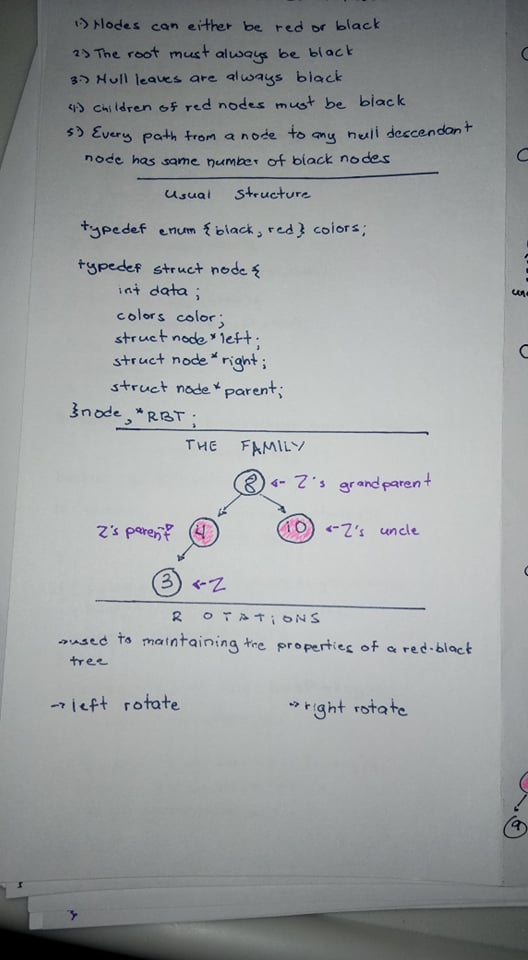 1.) Nodes can either be red or black
2.) The root must always be black
3.) Null leaves are always black
4.) children of red nodes must be black
5.) Every path from a node to any null descendant
node has same number of black nodes
Usual Structure
typedef enum {black, red} colors;
typedef struct node {
int data;
colors color;
struct node *left;
struct node *right;
struct node *parent;
}node, *RBT;
THE FAMILY
8 <- Z's grandparent
Z's parent -> 4
10 <- Z's uncle
3 <- Z
ROTATIONS
-> used to maintaining the properties of a red-black
tree
-> left rotate
-> right rotate
9